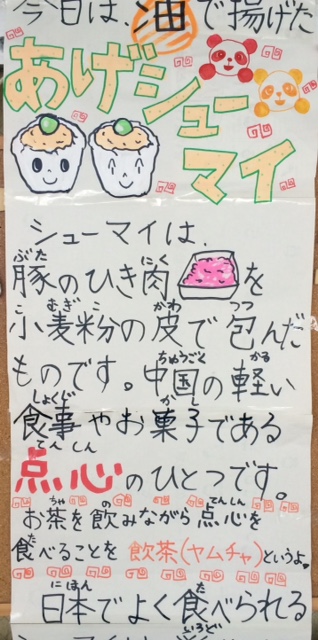 今日は、油で揚げた
あげシュー
マイ
シューマイは、
豚のひき肉を
小麦粉の皮で包んだ
ものです。中国の軽い
食事やお菓子である
点心のひとつです。
お茶を飲みながら点心を
食べることを飲茶(ヤムチャ)というよ。
日本でよく食べられる